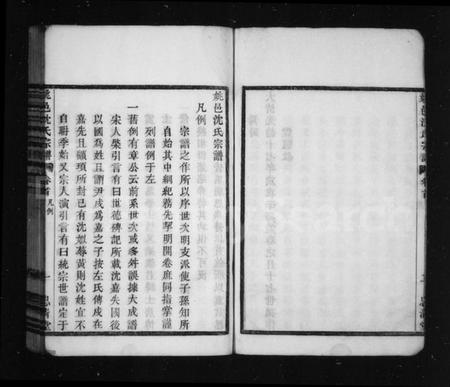 姚邑沈氏宗譜
凡例
宗譜之作所以序世次明支派使子孫知所
自始其中綱紀務先挈明開卷庶同指掌謹
列譜例于左
一舊例有章公云前系世次或多舛誤據大成譜
宋人榮引言有曰世德碑記所載沈嘉失國後
以國為姓且謂尹戌為嘉之子按左氏傳戌在
嘉先且顓頊所封已有沈姒蓐黃則沈姓宜不
自聃季始又宗人演引言有曰統宗世譜定于
姚邑沈氏宗譜 卷首 凡例 一 思齊堂